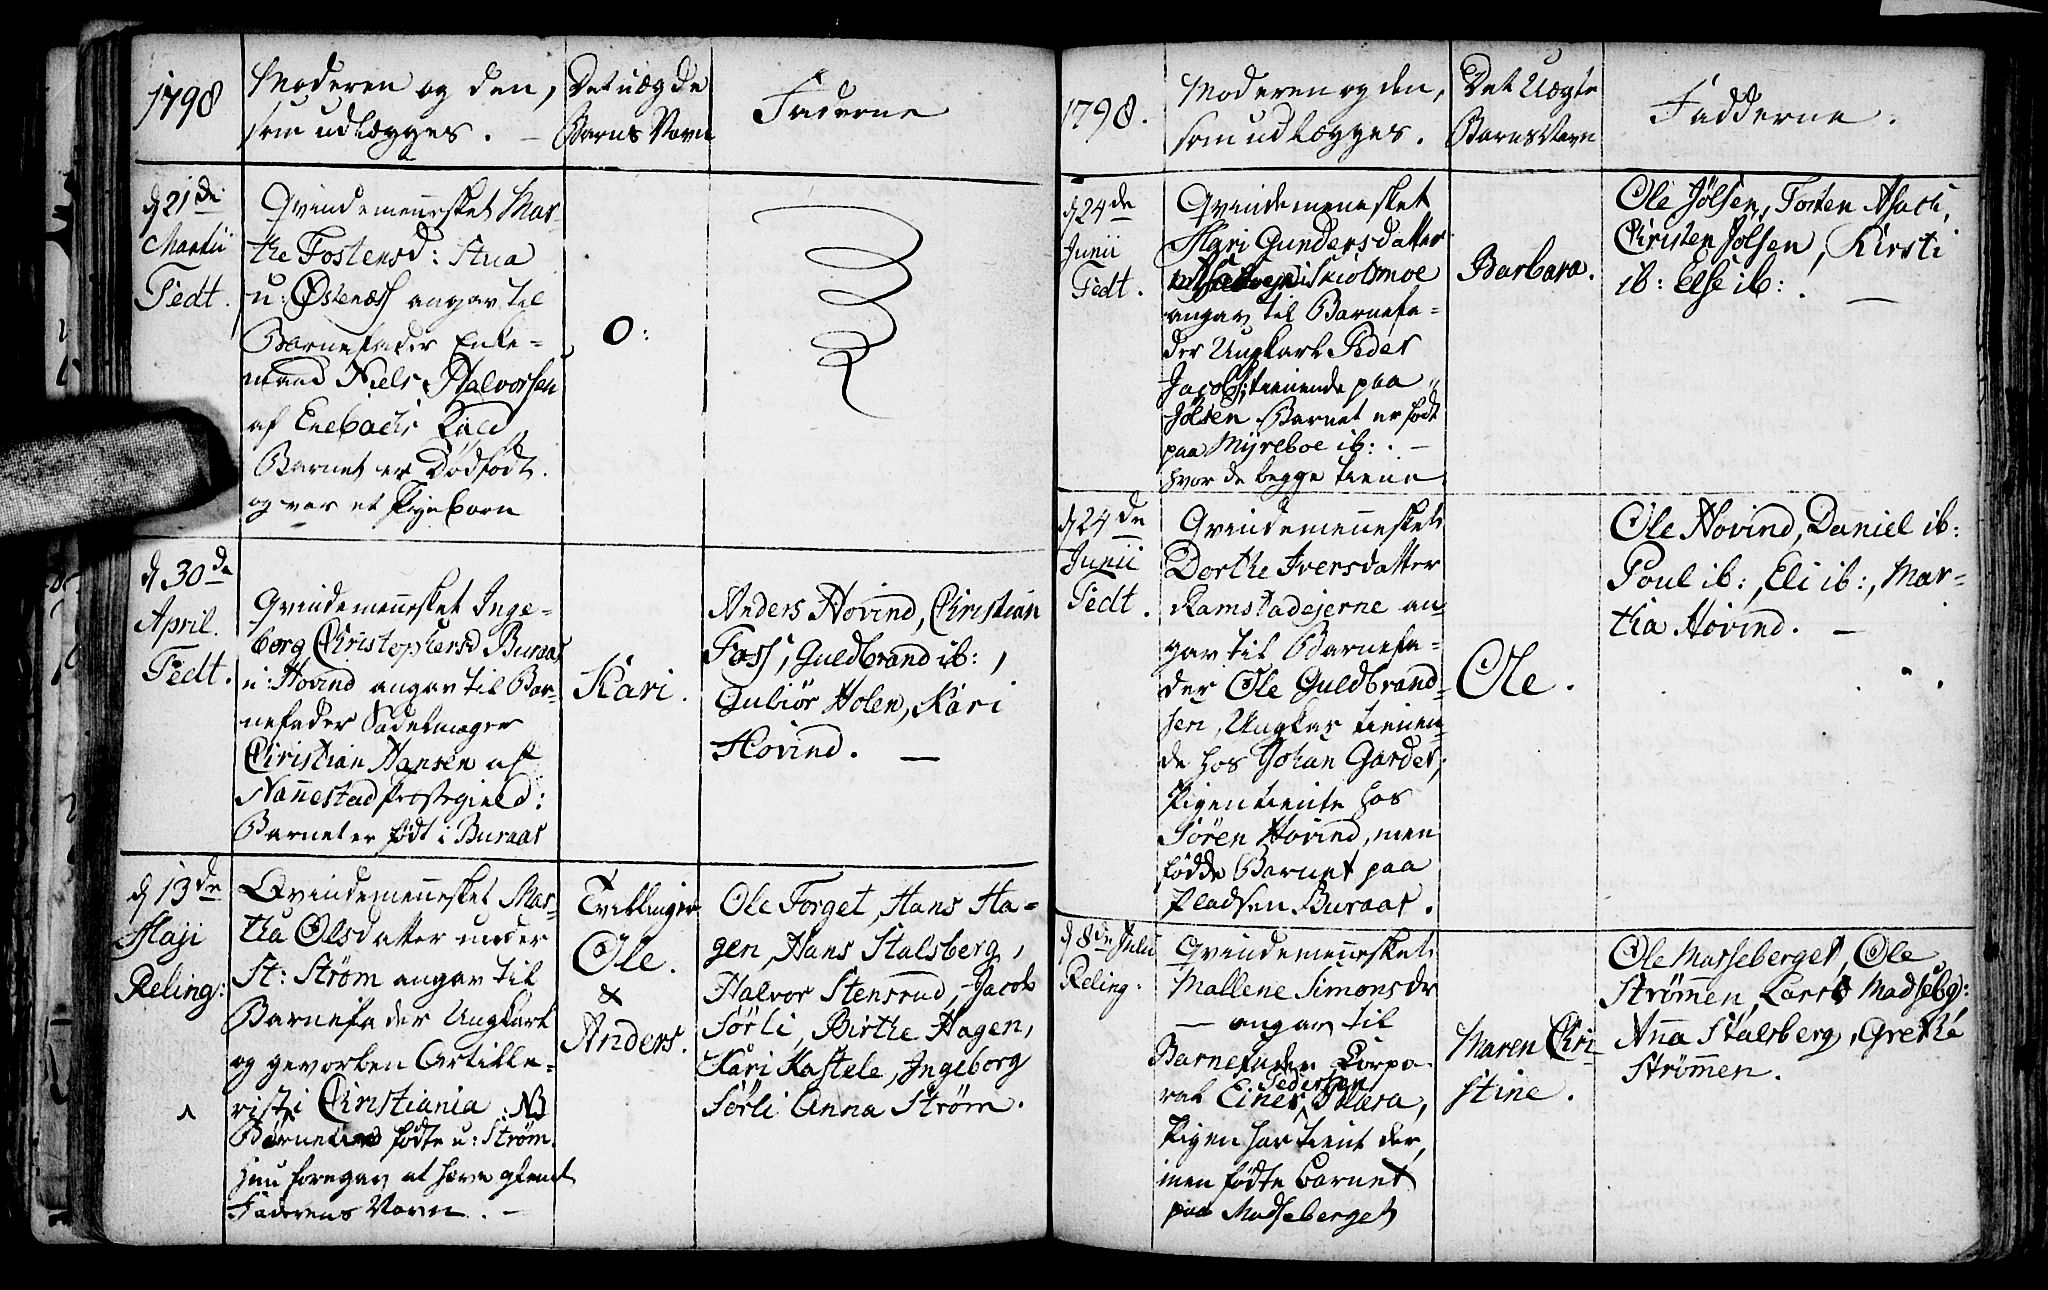 1798
Moderen og den,
som udlægges. —
Det uægde
Barns Navn
Faderne
d 21de
Martii
Fedt.
Qvindemennesket Mar-
the Tostensd: Stua
u: Østenæss angav til
Barnefader Enke-
mand Niels Halvorsen
af Enebachs
Barnet er Dødfødt.
og var et Pigebarn
0:
d 30de
April.
Fedt.
Qvindemennesket Inge-
borg Christophersd Buraas
u: Hovind angav til Bar-
nefader Sadelmager
Christian Hansen af
Nannestad Præstegield:
Barnet er født i Buraas
Kari.
Anders Hovind, Christian
Foss, Guldbrand ib:,
Guliør Holen, Kari
Hovind. —
d 13de
Maji
Reling:
Qvindemennesket Mar-
tha Olsdatter under
St: Strøm angav til
Barnefader Ungkarl
og gevorben Artille-
rist i Christiania NB
Børnene fødte u: Strøm.
hun foregav at have glemt
Faderens Navn. —
Tvillinger
Ole.
&
Anders.
Ole Torget, Hans Ha-
gen, Hans Stalsberg,
Halvor Stensrud, Jacob
Sørli, Birthe Hagen,
Kari Kastele, Ingeborg
Sørli Anna Strøm.
1798.
Moderen og den,
som udlægges.
Det Uægte
Barns Navn
Fadderne.
d 24de
Junii
Fedt.
Qvindemenesket
Mari Gundersdatter
Skiolmoe
angav til Barnefa-
der Ungkarl Peder
Jacobs: tienende paa
Jølsen. Barnet er født
paa Myreboe ib: . —
hvor de begge tiene
Barbara.
Ole Jølsen, Tosten Asach,
Christen Jølsen, Kirsti
ib: Else ib: . —
d 24de
Junii
Fedt.
Qvindemennesket
Dorthe Iversdatter
Ramstadejerne an-
gav til Barnefa-
der Ole Guldbrand-
sen, Ungkar tienen-
de hos Johan Garder,
Pigen tiente hos
Sören Hovind, men
fødde Barnet paa
Pladsen Buraas.
Ole.
Ole Hovind, Daniel ib:
Poul ib:, Eli ib:, Mar-
tha Hovind. —
d 8de Julii
Reling:
Qvindemennesket
Mallene Simonsdr
— angav til
Barnefader Corpo-
Pedersen
ral Einer Skæra,
Pigen har tient der,
men fødte barnet
paa Madseberget
Maren Chri-
stine.
Ole Masseberget, Ole
Strømen, Lars Madsebg:
Anna Stalsberg, Grethe
Strømen.